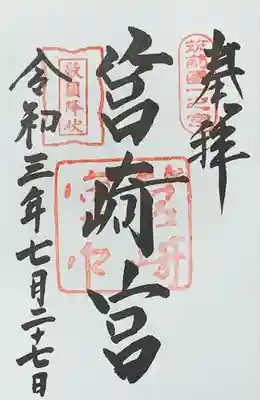 奉拝
筑前國一之宮
筥崎宮
敵國降伏
令和三年七月二十七日